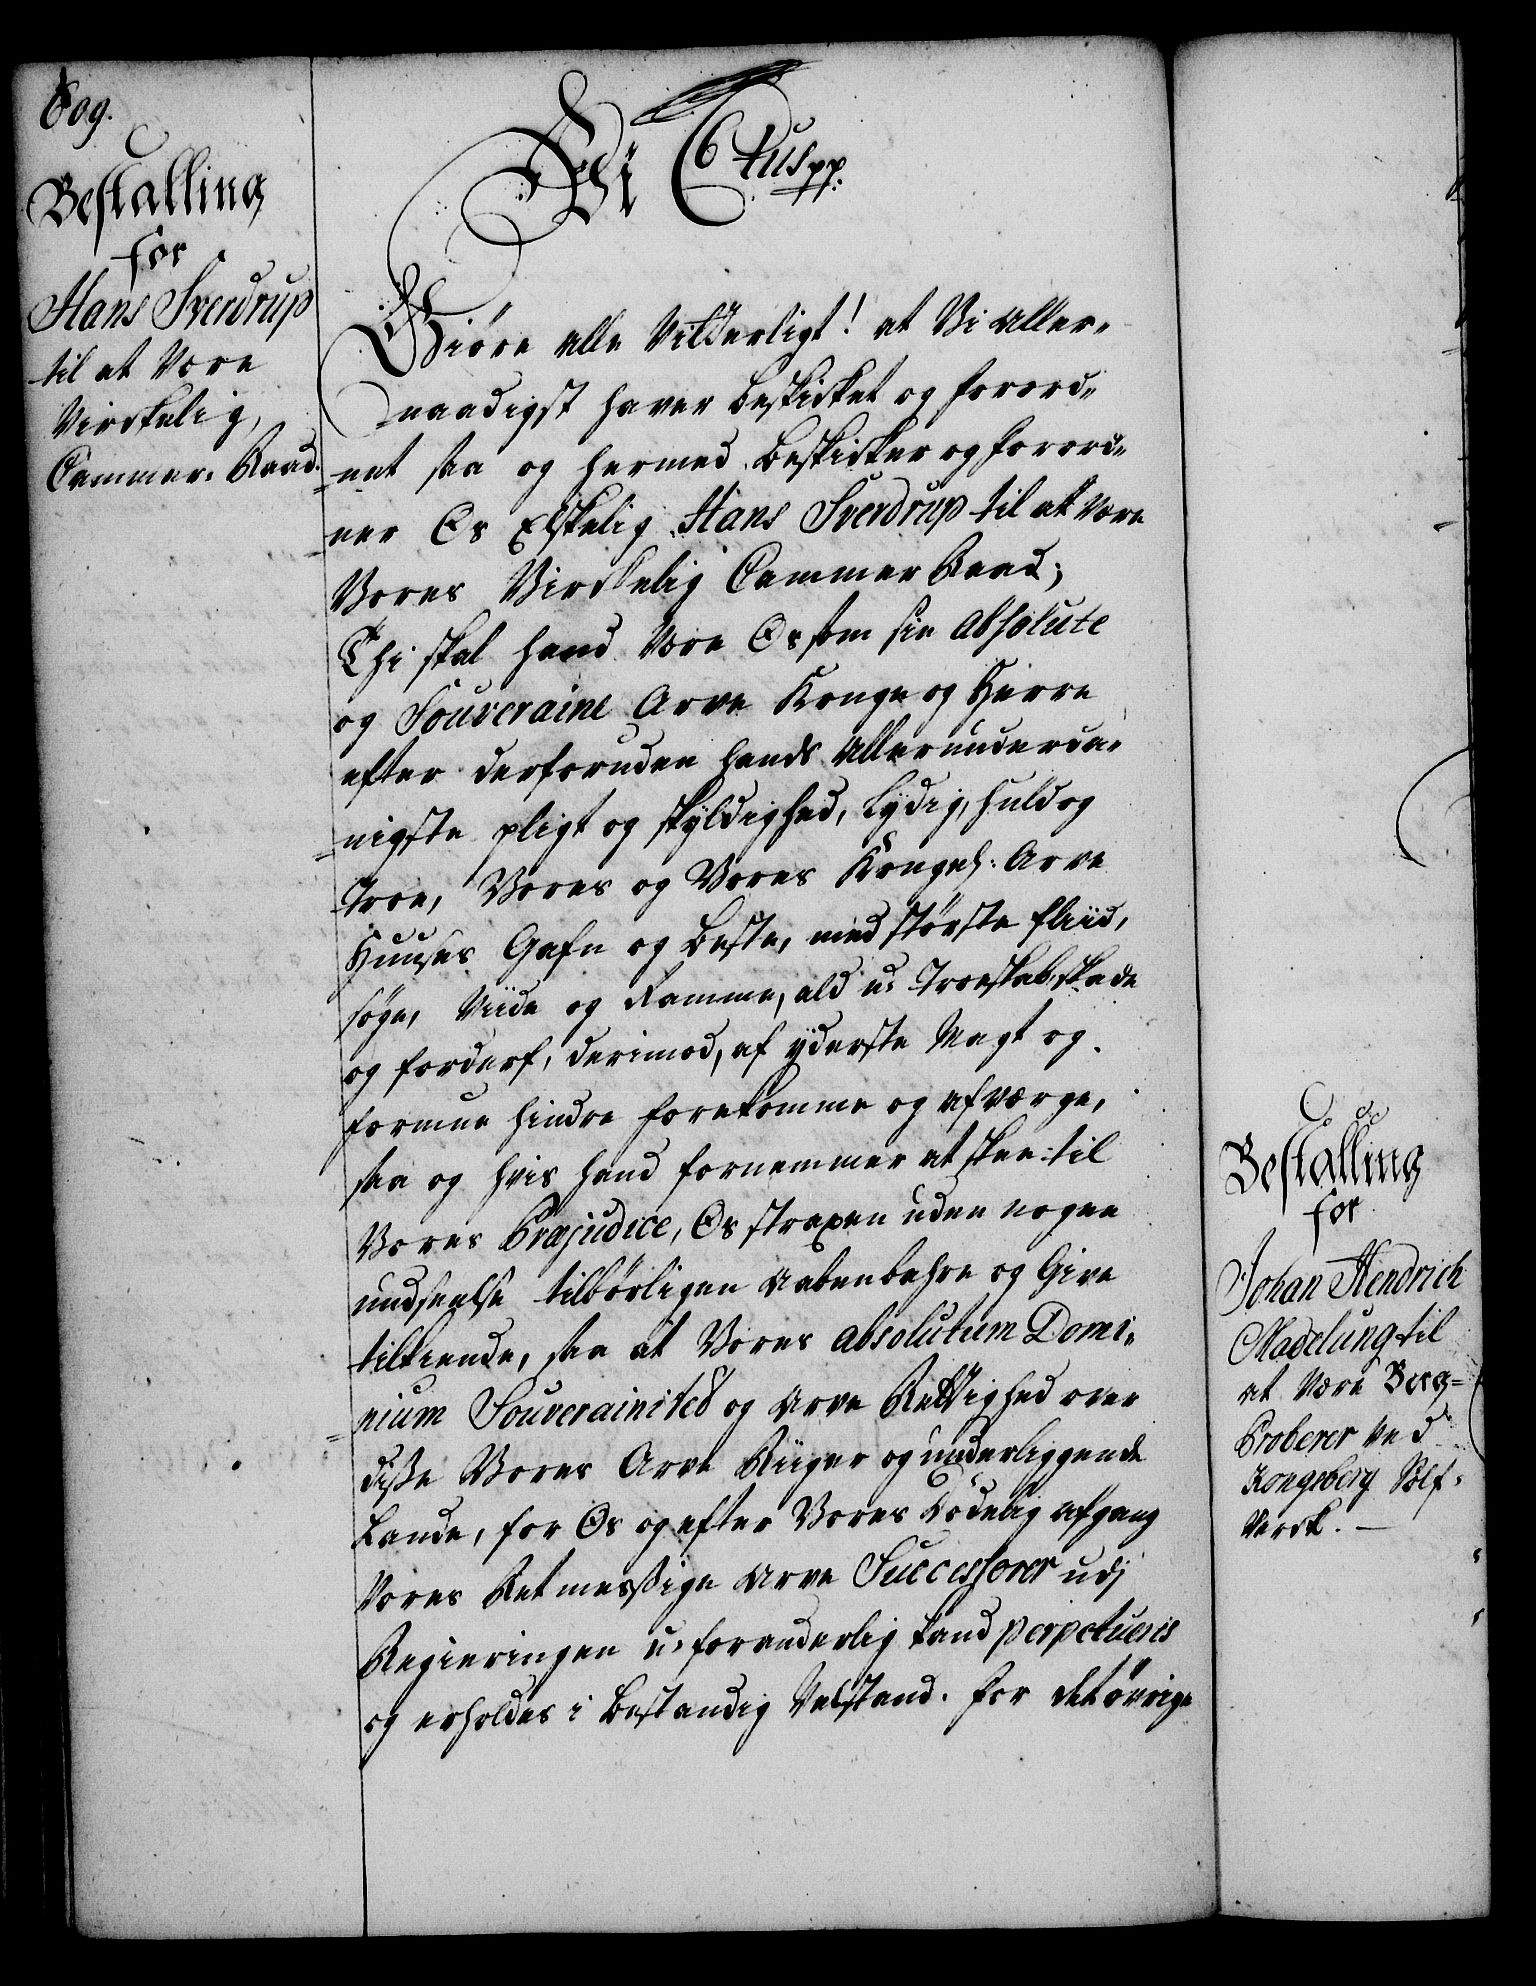 609.
Bestalling
for
Hans Sverdrup
til at Være
Virckelig
Cammer- Raad.
Vi C6tus pp.
Giöre alle Vitterligt! at Vi aller-
naadigst haver beskicket og forord-
net saa og hermed beskicker og forord-
ner Os Elskelig Hans Sverdrup til at være
Vores Virckelig Cammer Raad;
Thi skal hand Være Os som sin absolute
og Souveraine Arve Konge og Herre
efter derforuden hands Allerunderda-
nigste pligt og skyldighed, lydig, huld og
troe, Vores og Vores Kongel: Arve
Huuses Gafn og beste, med störste fliid,
söge, viide og ramme, ald u- troeskab skade
og forderf, derimod, af yderste Magt og
formue hindre forekomme og afværge,
saa og hvis hand fornemmer at skee til
Vores Præjudice, Os straxen uden nogen
undseelse tilbörligen aabenbahre og Give
tilkiende, saa at Vores absolutum Domi-
nium Souverainited og Arve Rettighed over
disse Vores Arve Riiger og underliggende
Lande, for Os og efter Vores Dödelig afgang
Vores Retmessige Arve Successorer udj
Regieringen u-foranderlig kand perpetueris
og erholdes i bestandig Velstand. For det övrige
Bestalling
for
Johan Hendrich
Madelung til
at være Berg-
Proberer ved
Kongsberg Sölf-
Verck.